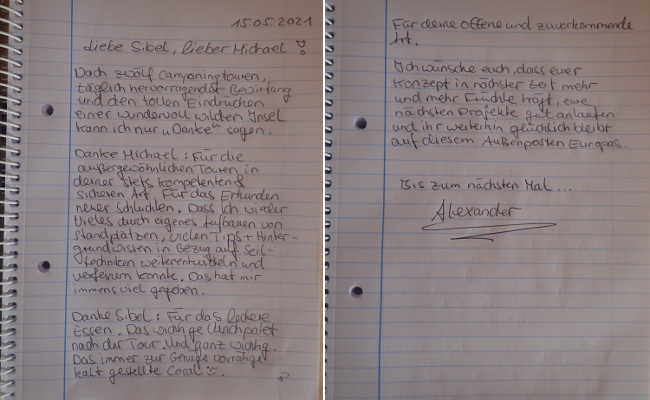 15.05.2021
Liebe Sibel, lieber Michael !
Nach zwölf Canyoningtouren,
täglich hervorragendster Bewirtung
und den tollen Eindrücken
einer wundervoll wilden Insel
kann ich nur „Danke" sagen.
Danke Michael: Für die
außergewöhnlichen Touren in
deiner stets kompetenten &
sicheren Art. Für das Erkunden
neuer Schluchten. Dass ich wieder
vieles durch eigenes Aufbauen von
Standplätzen, vielen Tips + Hinter-
grundwissen in Bezug auf Seil-
techniken weiterentwickeln und
verfeinern konnte. Das hat mir
immens viel gegeben.
Danke Sibel: Für das leckere
Essen. Das wichtige Lunchpaket
nach der Tour. Und ganz wichtig.
Das immer zur Genüge vorrätige
kalt gestellte Coral
Für deine offene und zuvorkommende
Art.
Ich wünsche euch, dass euer
Konzept in nächster Zeit mehr
und mehr Früchte trägt, eure
nächsten Projekte gut anlaufen
und ihr weiterhin glücklich bleibt
auf diesem Außenposten Europas.
Bis zum nächsten Mal...
Alexander